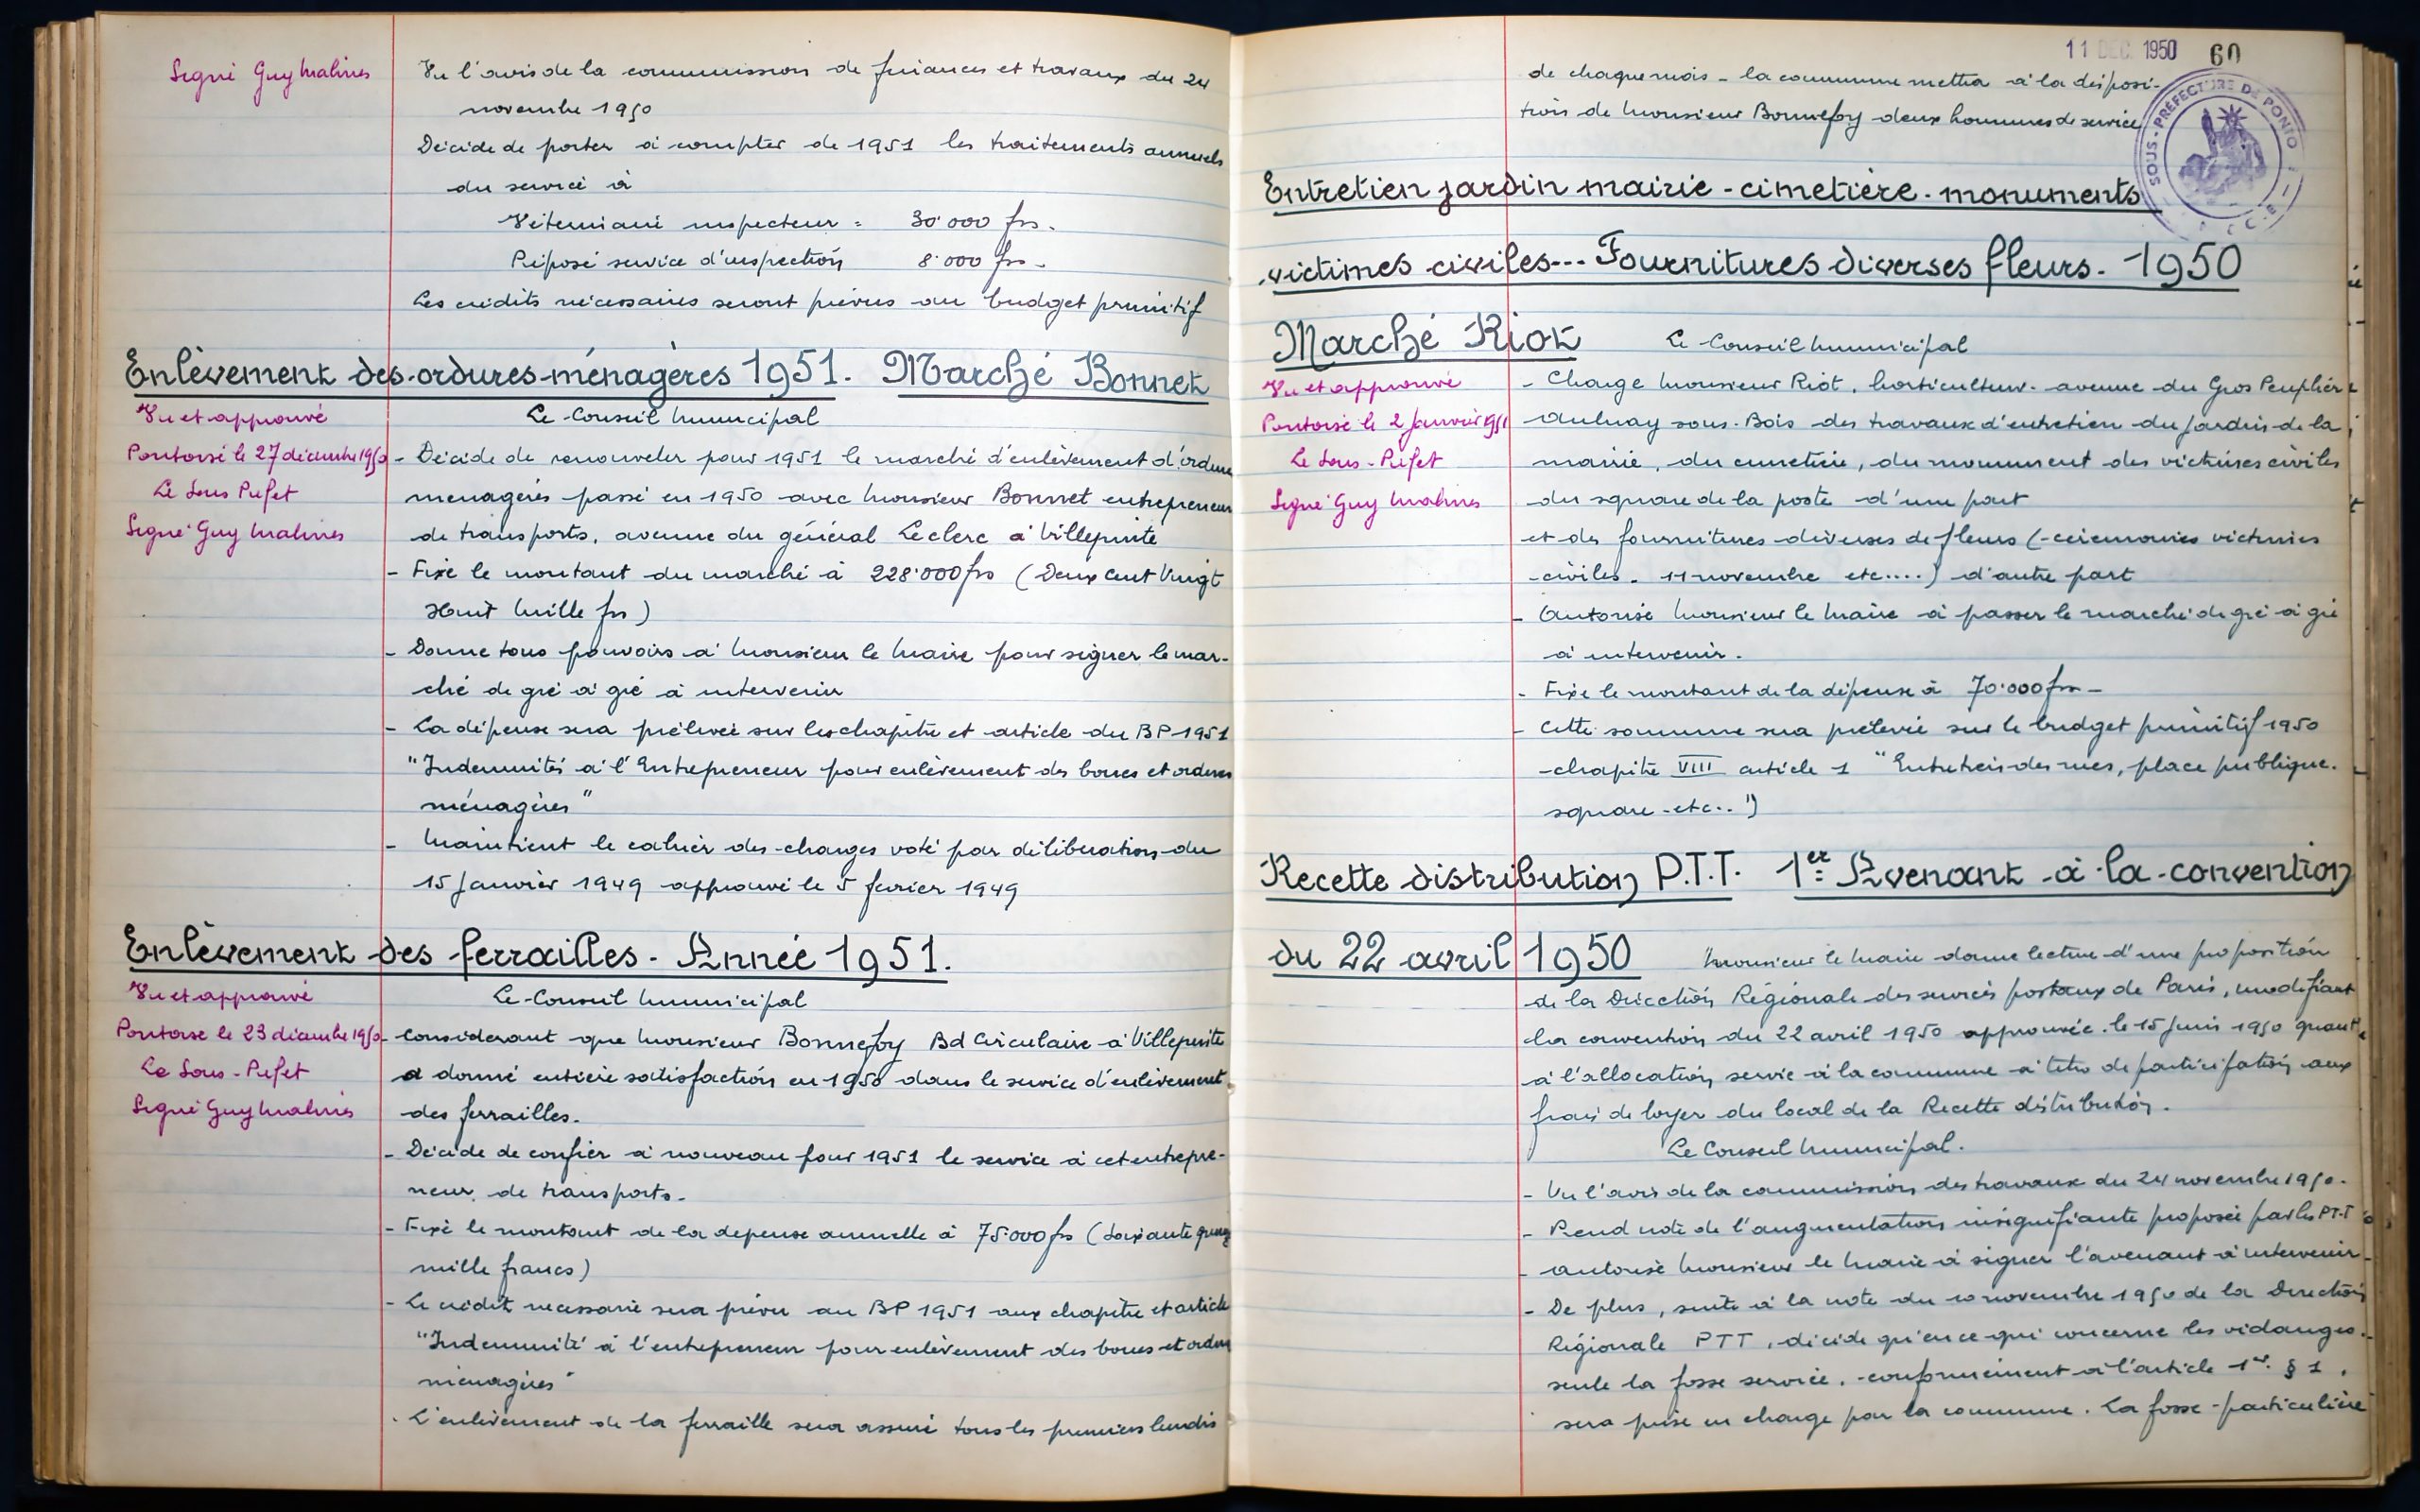 Signé Guy Malines
Vu l'avis de la commission de finances et travaux du 24
novembre 1950
Décide de porter à compter de 1951 les traitements annuels
du service à
Vétérinaire inspecteur = 30.000 frs.
Préposé service d'inspection 8.000 frs.
Les crédits nécessaires seront prévus au budget primitif
Enlèvement des ordures ménagères 1951. Marché Bonnet
Vu et approuvé
Pontoise le 27 décembre 1950
Le Sous Préfet
Signé Guy Malines
Le Conseil Municipal
- Décide de renouveler pour 1951 le marché d'enlèvement d'ordures
ménagères passé en 1950 avec Monsieur Bonnet entrepreneur
de transports, avenue du général Leclerc à Villepinte
- Fixe le montant du marché à 228.000 frs (Deux Cent Vingt
Huit Mille frs)
- Donne tous pouvoirs à Monsieur le Maire pour signer le mar-
ché de gré à gré à intervenir
- La dépense sera prélevée sur les chapitre et article du BP 1951
"Indemnités à l'Entrepreneur pour enlèvement des boues et ordures
ménagères"
- Maintient le cahier des charges voté par délibération du
15 Janvier 1949 approuvé le 5 février 1949
Enlèvement des ferrailles - Année 1951.
Vu et approuvé
Pontoise le 23 décembre 1950
Le Sous-Préfet
Signé Guy Malines
Le Conseil Municipal
- considérant que Monsieur Bonnefoy Bd Circulaire à Villepinte
a donné entière satisfaction en 1950 dans le service d'enlèvement
des ferrailles.
- Décide de confier à nouveau pour 1951 le service à cet entrepre-
neur de transports.
- Fixe le montant de la dépense annuelle à 75.000 frs (Soixante quinze
mille francs)
- Le crédit nécessaire sera prévu au BP 1951 aux chapitre et article
"Indemnité à l'entrepreneur pour enlèvement des boues et ordures
ménagères"
. L'enlèvement de la ferraille sera assuré tous les premiers lundis
11 DEC. 1950 60
de chaque mois - la commune mettra à la disposi-
tion de Monsieur Bonnefoy deux hommes de service
SOUS-PRÉFECTURE DE PONTO
Entretien jardin mairie - cimetière - monuments
victimes civiles... Fournitures diverses fleurs. 1950
Marché Riot
Vu et approuvé
Pontoise le 2 Janvier 1951
Le Sous-Préfet
Signé Guy Malines
Le Conseil Municipal
- Charge Monsieur Riot, horticulteur. avenue du Gros Peuplier
Aulnay sous-Bois des travaux d'entretien du Jardin de la
mairie, du cimetière, du monument des victimes civiles
du square de la poste d'une part
et des fournitures diverses de fleurs (cérémonies victimes
civiles. 11 novembre etc....) d'autre part
- Autorise Monsieur le Maire à passer le marché de gré à gré
à intervenir.
- Fixe le montant de la dépense à 70.000 frs -
- Cette somme sera prélevée sur le budget primitif 1950
chapitre VIII article 1 "Entretien des rues, place publique.
square etc..")
Recette distribution P.T.T. 1er Avenant à la convention
du 22 avril 1950
Monsieur le Maire donne lecture d'une proposition
de la Direction Régionale des services postaux de Paris, modifiant
la convention du 22 avril 1950 approuvée le 15 Juin 1950 quant
à l'allocation servie à la commune à titre de participation aux
frais de loyer du local de la Recette distribution.
Le Conseil Municipal.
- Vu l'avis de la commission des travaux du 24 novembre 1950.
- Prend note de l'augmentation insignifiante proposée par les PTT
- autorise Monsieur le Maire à signer l'avenant à intervenir
- De plus, suite à la note du 10 novembre 1950 de la Direction
Régionale PTT, décide qu'en ce qui concerne les vidanges.
seule la fosse service, conformément à l'article 1er § 1,
sera prise en charge par la commune. La fosse particulière